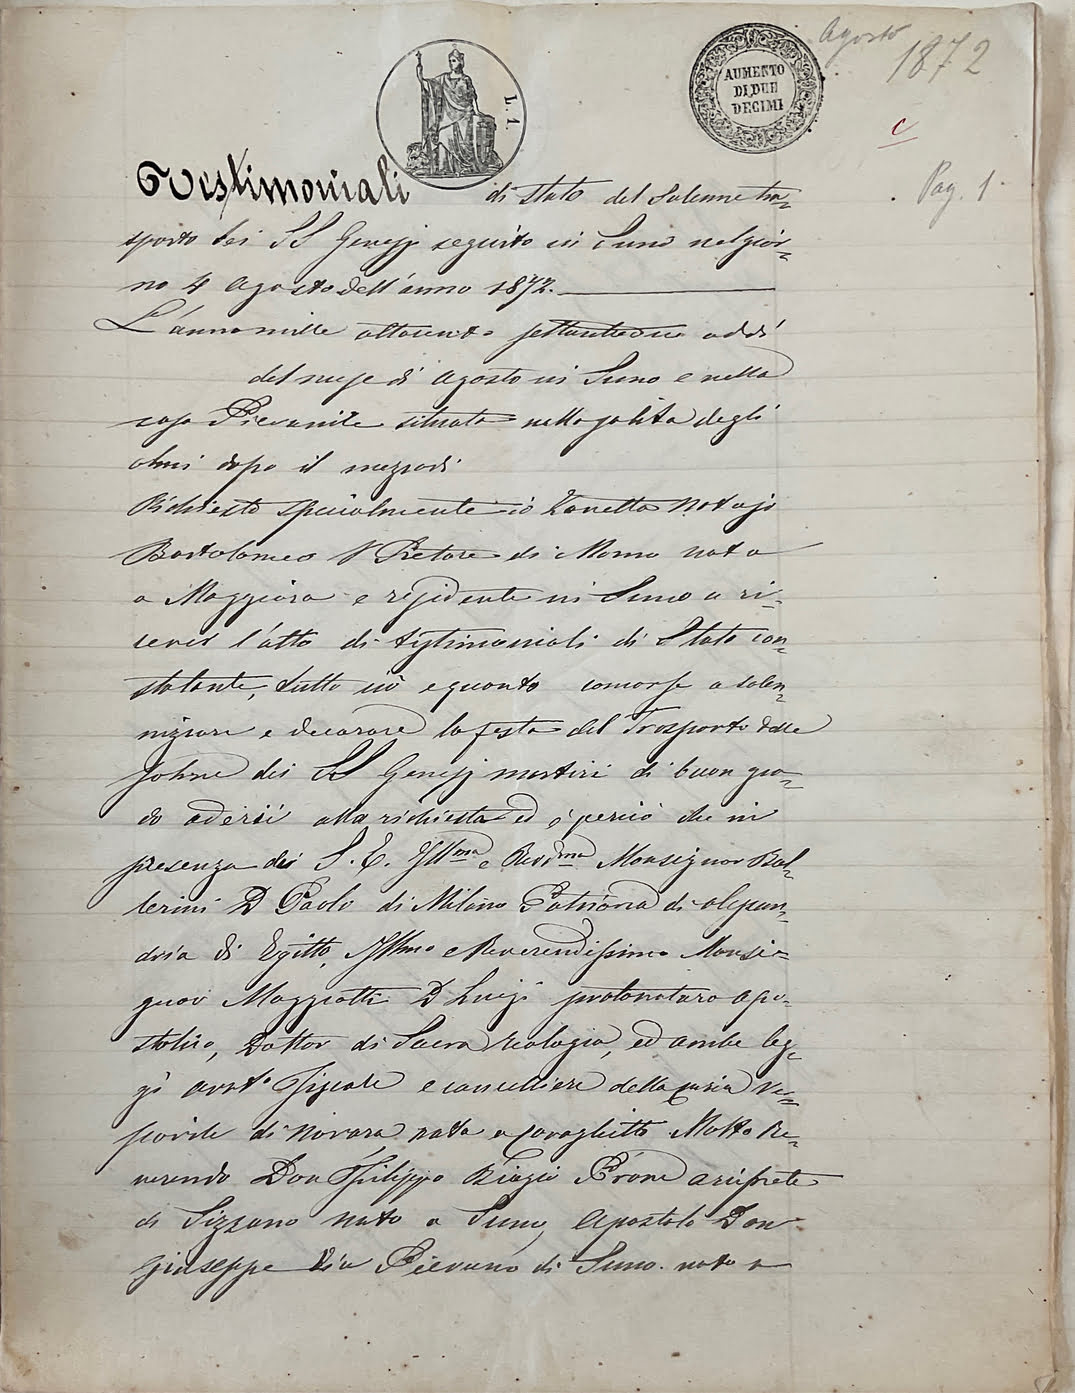 Agosto
1872
L. 1.
AUMENTO
DI DUE
DECIMI
c
Pag. 1
Testimoniali di stato del Solenne tra=
sporto dei SS Genesj seguito in Suno nel gior=
no 4 Agosto dell'anno 1872.
L'anno mille ottocento settantadue addi'
del mese di Agosto in Suno e nella
casa Pievanile situata nella località degli
olmi dopo il mezzodi
Richiesto specialmente io Zanetta Notajo
Bartolomeo V Pretore di Momo nato
a Maggiora e residente in Suno a ri=
cever l'atto di testimoniali di Stato con=
statante, tutto ciò e quanto concorse a solen=
nizzare e decorare la festa del Trasporto delle
Salme dei SS Genesj martiri di buon gra=
do aderii alla richiesta ed è perciò che in
presenza di S. E. Illma e Revdma Monsignor Bal=
lerini D Paolo di Milano Patriarca di Alessan=
dria di Egitto, Illmo e Reverendissimo Monsi=
gnor Mazziotti D Luigi protonotaro apo=
stolico, Dottor di Sacra teologia, ed ambe leg=
gi avvto Fiscale e cancelliere della curia Ve=
scovile di Novara nato a Cavaglietto Molto Re=
verendo Don Filippo Biagio Prone arciprete
di Sizzano nato a Suno, Apostolo Don
Giuseppe Pievano di Suno nato a